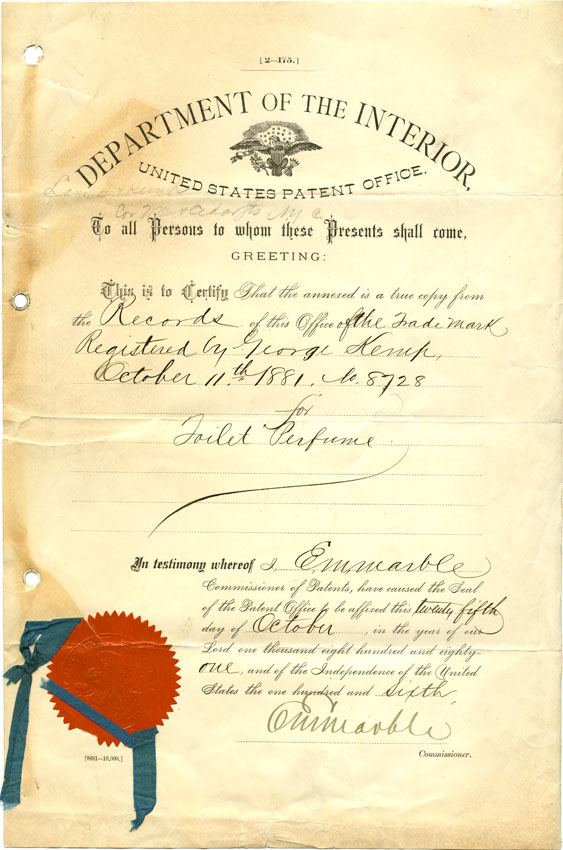 [2—175.]
DEPARTMENT OF THE INTERIOR,
UNITED STATES PATENT OFFICE.
To all Persons to whom these Presents shall come,
GREETING:
This is to Certify That the annexed is a true copy from
the Records of this Office of the Trade Mark
Registered by George Kemp,
October 11th 1881. No. 8728
for
Toilet Perfume
In testimony whereof I, E. M. Marble
Commissioner of Patents, have caused the Seal
of the Patent Office to be affixed this twenty fifth
day of October, in the year of our
Lord one thousand eight hundred and eighty-
one, and of the Independence of the United
States the one hundred and sixth.
E. M. Marble
Commissioner.
[8681—10,000.]